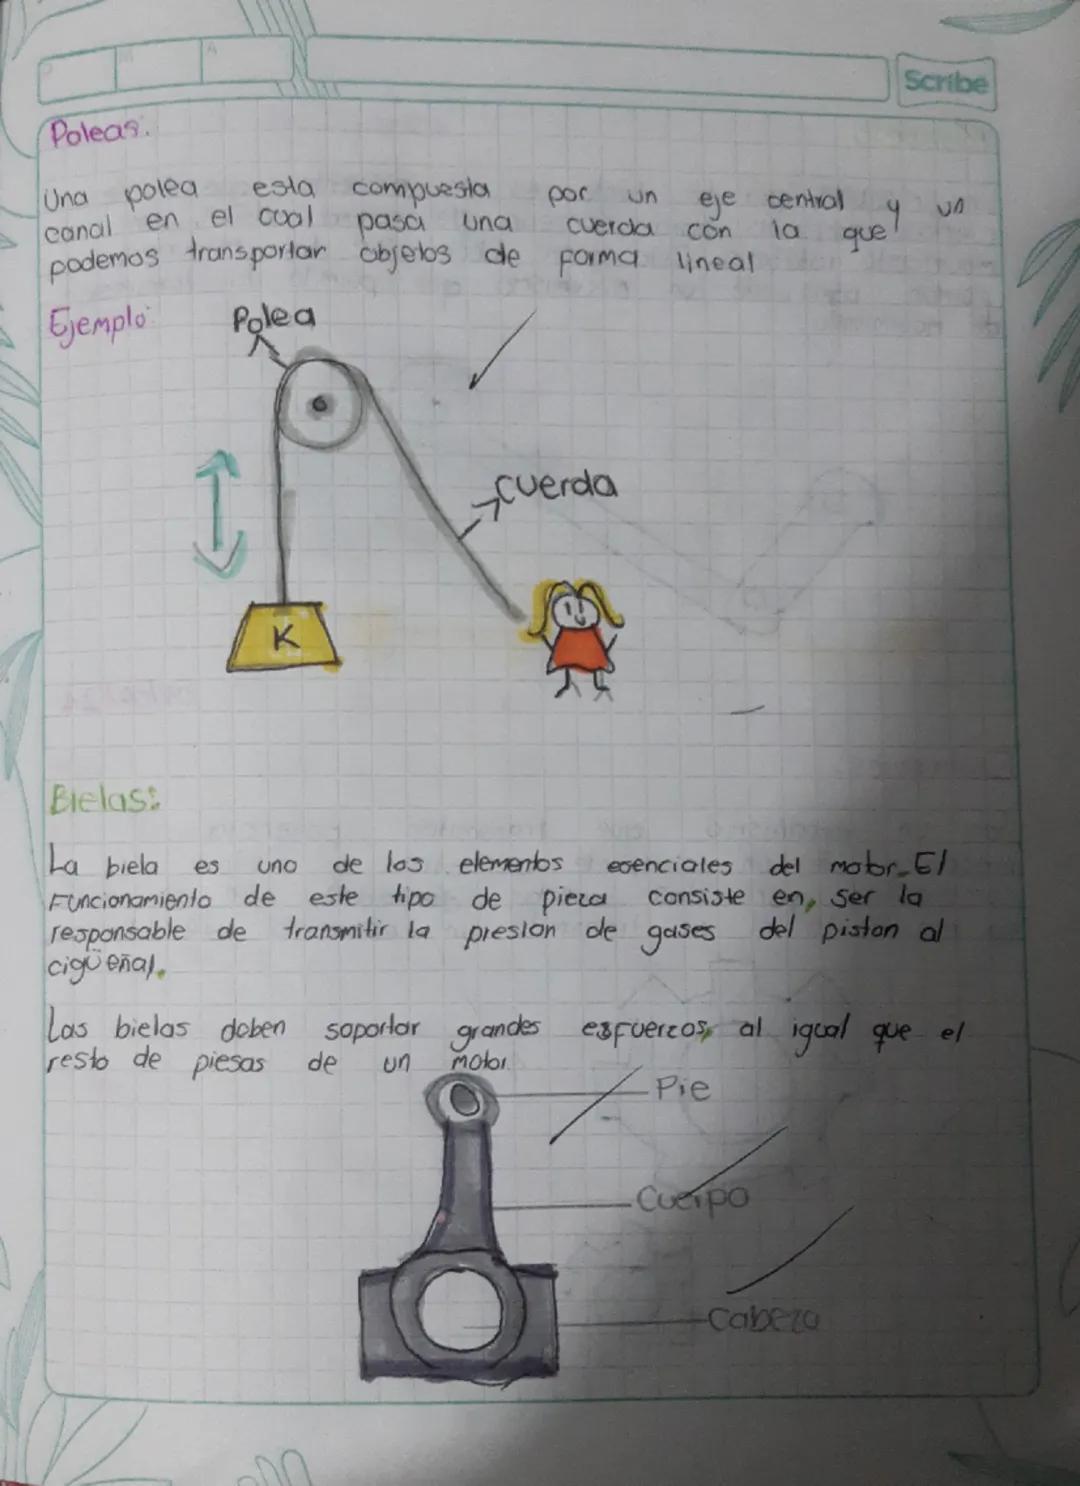 Scribe
Poleas.
Una polea esta compuesta por un eje central y un
canal en el cual pasa una cuerda con la que
podemos transportar objetos de forma lineal
Ejemplo:
Polea
cuerda
K
Bielas:
La biela es uno de los elementos esenciales del motor. El
Funcionamiento de este tipo de pieza consiste en, ser la
responsable de transmitir la presion de gases del piston al
cigüeñal.
Las bielas deben soportar grandes esfuerzos, al igual que el
resto de piesas de un motor.
Pie
Cuerpo
Cabeza